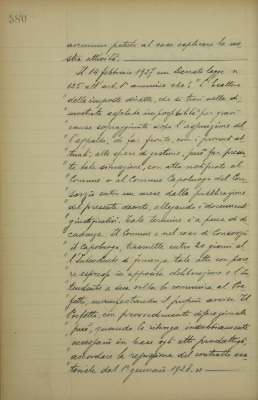 380
avremmo potuto al caso esplicare la no-
stra attività.
Il 14 febbraio 1927 un Decreto legge n
125 all'art. 1° ammise che: "L'Esattore
"delle imposte dirette, che si trovi nella di-
"mostrata assoluta impossibilità per gravi
"cause sopraggiunte dopo l'assunzione del-
"l'appalto, di far fronte, con i normali at-
"tuali, alle spese di gestione, può far presen-
"te tale situazione, con atto notificato al
"Comune o al Comune Capoluogo del Con-
"sorzio entro un mese dalla pubblicazione
"del presente decreto, allegando i documenti
"giustificativi. Tale termine è a pena di de-
"cadenza. Il Comune o nel caso di Consorzio
"il capoluogo, trasmette entro 20 giorni al-
"l'Intendente di finanza tale atto con pare-
"re espresso in apposita deliberazione e l'In-
"tendente a sua volta lo comunica al Pre-
"fetto, manifestando il proprio avviso. Il
"Prefetto, con provvedimento discrezionale
"può, quando lo ritenga indubbiamente
"necessario in base agli atti prodottigli,
"accordare la revisione del contratto esat-
"toriale dal 1° gennaio 1928. »